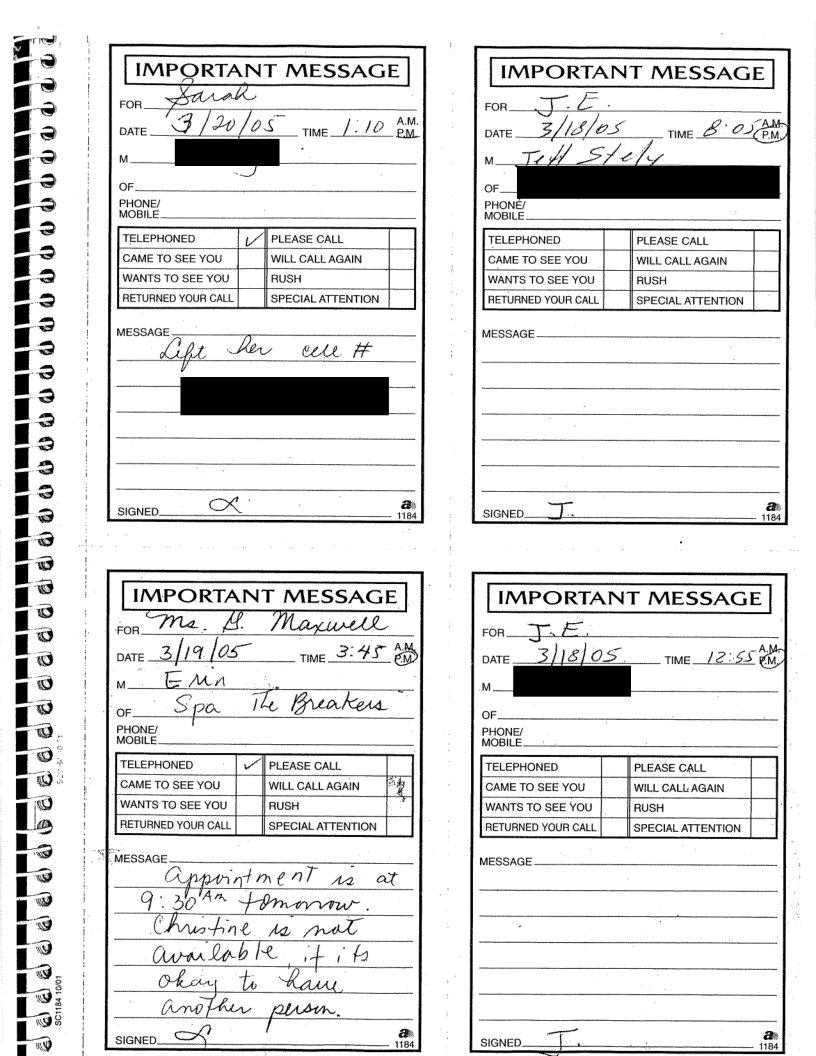 IMPORTANT MESSAGE
FOR Sarah
DATE 3/20/05 TIME 1:10 A.M. P.M.
M
OF
PHONE/
MOBILE
TELEPHONED ✓ PLEASE CALL
CAME TO SEE YOU WILL CALL AGAIN
WANTS TO SEE YOU RUSH
RETURNED YOUR CALL SPECIAL ATTENTION
MESSAGE
Left her cell #
SIGNED
1184
IMPORTANT MESSAGE
FOR J.E.
DATE 3/18/05 TIME 8:05 A.M. P.M.
M Jeff
OF
PHONE/
MOBILE
TELEPHONED PLEASE CALL
CAME TO SEE YOU WILL CALL AGAIN
WANTS TO SEE YOU RUSH
RETURNED YOUR CALL SPECIAL ATTENTION
MESSAGE
SIGNED J.
1184
IMPORTANT MESSAGE
FOR Ms. G. Maxwell
DATE 3/19/05 TIME 3:45 A.M. P.M.
M Erin
OF Spa The Breakers
PHONE/
MOBILE
TELEPHONED ✓ PLEASE CALL
CAME TO SEE YOU WILL CALL AGAIN
WANTS TO SEE YOU RUSH
RETURNED YOUR CALL SPECIAL ATTENTION
MESSAGE
appointment is at
9:30 Am tomorrow.
Christine is not
available, if its
okay to have
another person.
SIGNED
1184
IMPORTANT MESSAGE
FOR J.E.
DATE 3/18/05 TIME 12:55 A.M. P.M.
M
OF
PHONE/
MOBILE
TELEPHONED PLEASE CALL
CAME TO SEE YOU WILL CALL AGAIN
WANTS TO SEE YOU RUSH
RETURNED YOUR CALL SPECIAL ATTENTION
MESSAGE
SIGNED J.
1184
SC1184 10/01